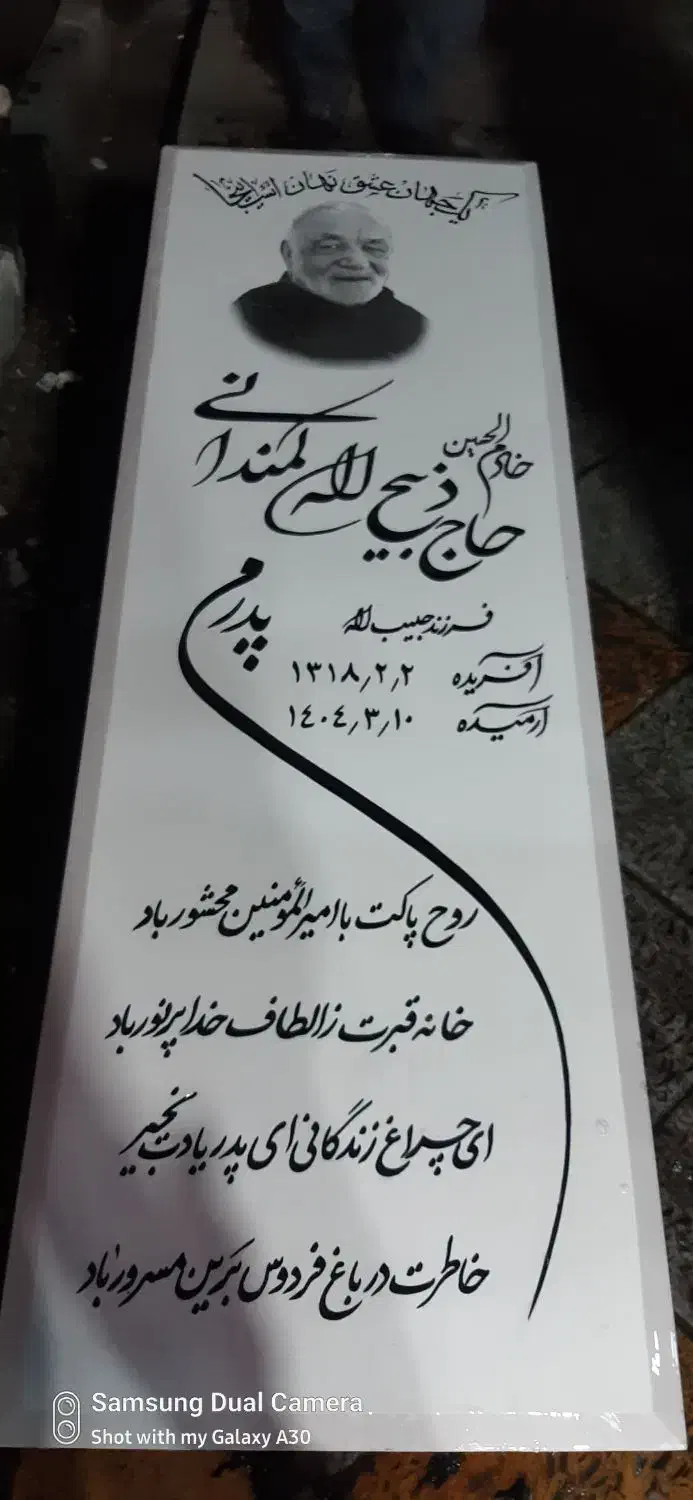 یک جهان عشق نهان است اینجا
خادم الحسین
حاج ذبیح الله کمندانی
پدرم
فرزند حبیب الله
آفریده ۱۳۱۸/۲/۲
آرمیده ۱۴۰۴/۳/۱۰
روح پاکت با امیرالمؤمنین محشور باد
خانه قبرت ز الطاف خدا پر نور باد
ای چراغ زندگانی ای پدر یادت بخیر
خاطرت در باغ فردوس برین مسرور باد
Samsung Dual Camera
Shot with my Galaxy A30